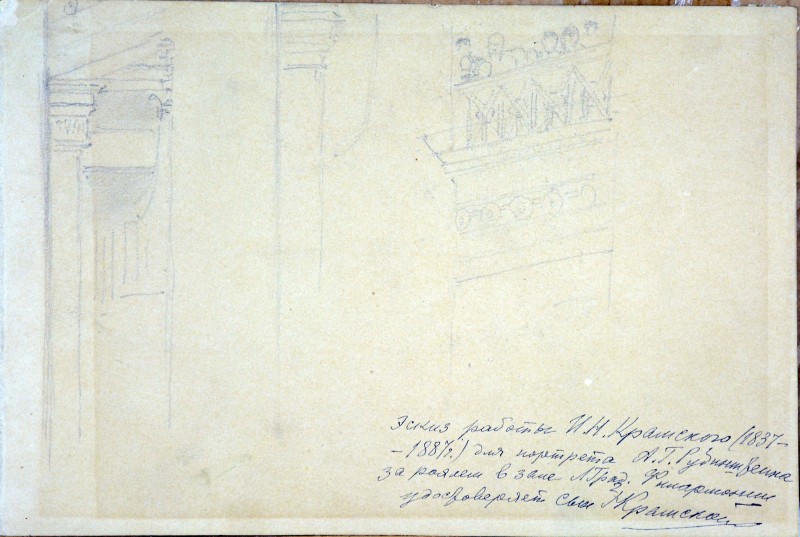 Эскиз работы И.Н. Крамского (1837-
- 1887г.) для портрета А.Г. Рубинштейна
за роялем в зале Л.Град. Филармонии
удостоверяет сын Крамской